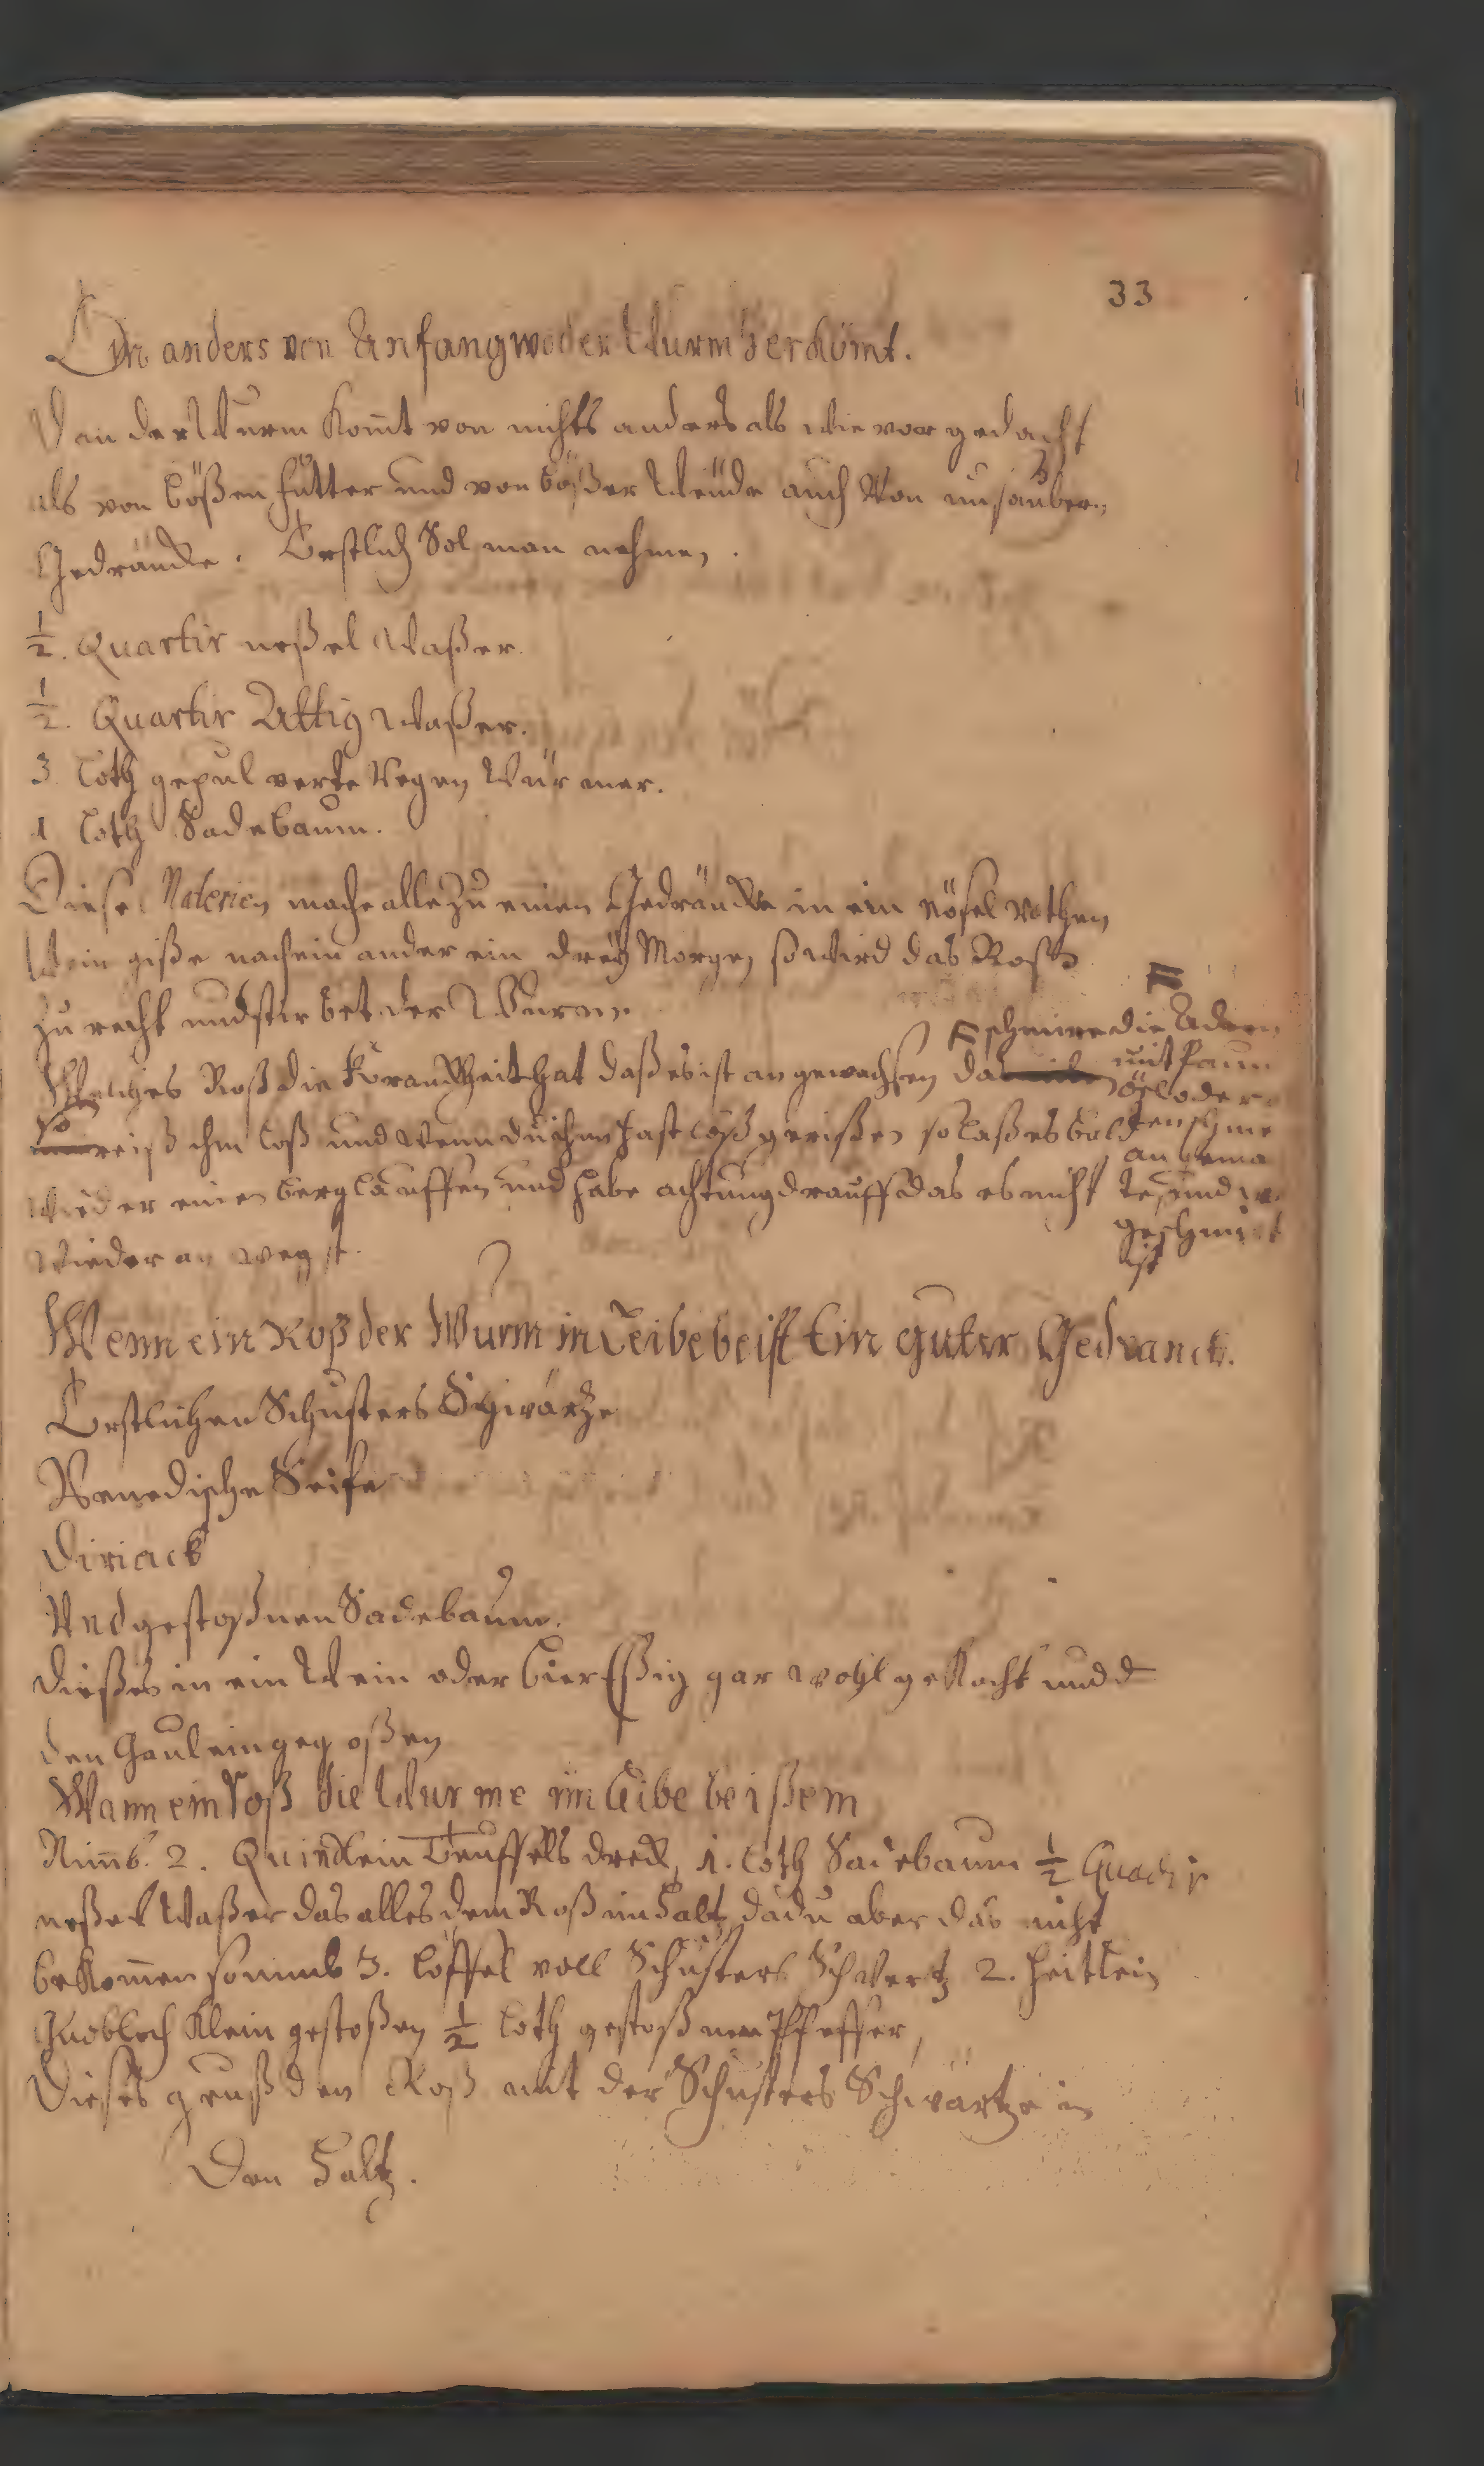 33
Ein anders von Anfang wo der Wurm herkömt.
Dan der Wurm komt von nichts anders als wie vor gedacht
als von bößen futter und von bößer Weude auch Von unsauber
Gedräncke. Erstlich Sol man nehmen.
½. Quartir neßel Waßer.
½. Quartir Attig Waßer.
3 Loth gepulverte Regen Würmer.
1 Loth Sadebaum.
Diese Materien mache alle zu einen Gedräncke in ein Nösel rothen
Wein giße nach ein ander ein dreÿ Morgen so wird das Roß
zu recht und stirbet der Wurm.
Welches Roß die Kranckheit hat daß es ist angewachsen da
so reiß ihm loß und wenn du ihm hast loß gerißen so laß es bald
wieder einen berg lauffen und habe achtung drauff das es nicht
wieder an wegst.
F schmire die Adern
mit baum
öel oder
an
te und
geschmirt
ist
Wenn ein Roß der Wurm in Leibe beist Ein guter Gedranck.
Erstlichen Schusters Schwärtze
Venedische Seife
Diriack
Und gestoßnen Sadebaum.
Dießes in ein Wein oder bier Eßig gar wohl gekocht und
den Gaul ein gegoßen
Wann ein Roß die Wurme im Leibe beißem
Nimb. 2. Quindlein Teuffels dreck, 1. Loth Sadebaum ½ Quartir
neßel Waßer das alles dem Roß im Halß da du aber das nicht
bekommen so nimb 3. Löffel voll Schusters Schwertz 2. Heitlein
Knobloch klein gestoßen ½ Loth gestoßnen Pfeffer,
Dießes geuß den Roß mit der Schusters Schwärtze in
Den Halß.